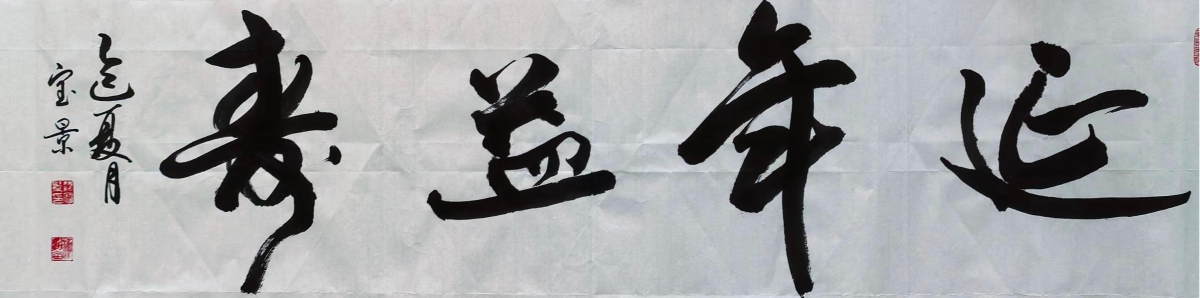 延年益寿
夏月
宝景